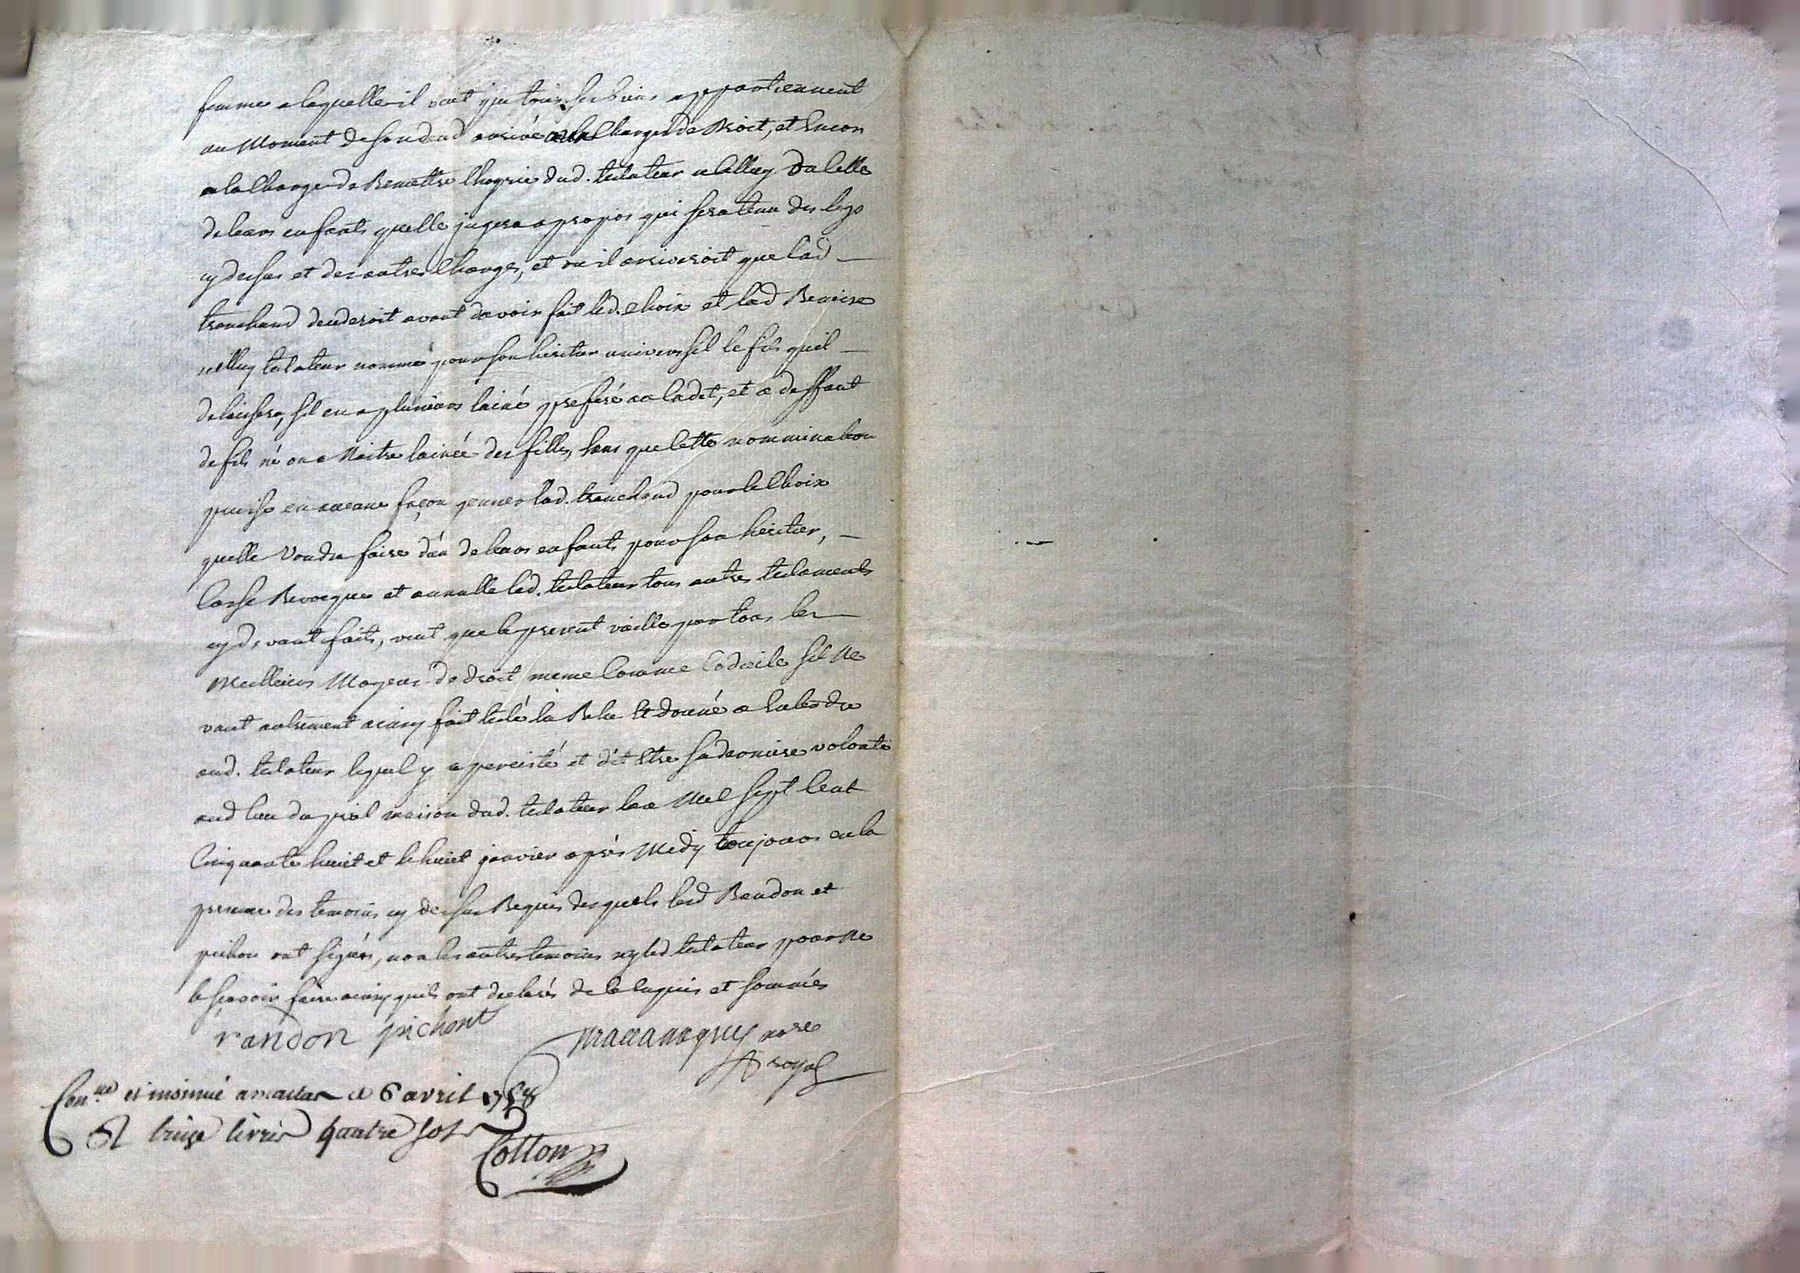 femme a laquelle il veut que tous ses biens appartiennent
au moment de son deced arrivé a la charge de Droit, et encor
a la charge de Remettre lhoyrie dud. testateur a celluy ou celle
de leurs enfants quelle jugera apropos qui sera tenu des legs
cy dessus et des autres charges, et ou il arriveroit que lad
tranchand decederoit avant davoir fait led. choix et lad Remise
icelluy testateur nomme pour son heritier universsel le fils quil
delaissera, sil en a plusieurs lainé preferé au cadet, et a deffaut
de fils né ou a Naitre lainée des filles, sans que cette nommination
puisse en aucune façon gener lad. tranchand pour le choix
quelle voudra faire d'un de leurs enfants pour son heritier,
Casse Revoeque et annulle led. testateur tous autres testaments
cy devant faits, veut que le present vaille par tous les
Meilleurs Moyens de droit meme Comme Codicile sil Ne
vaut autrement ainsy fait Recité la Relu et donné a entendre
aud. testateur lequel y a percisté et dit Etre sa derniere volonté
aud lieu du maison dud. testateur lan Mil sept Cent
Cinquante huit et le huit janvier après Midy toujours en la
presence des temoins cy dessus Requis desquels led Randon et
pichon ont signés, non les autres temoins ny led testateur pour Ne
le scavoir faire ainsy quils ont declarés de ce enquis et sommés
randon pichont nore
royal
Con.lle et insinué a le 6 avril 1758
R treize livres quatre sols
Cotton